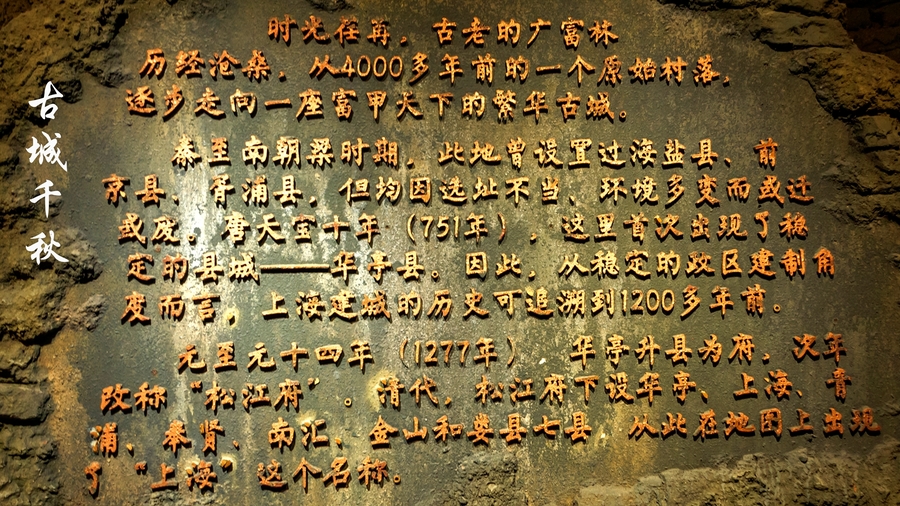 古城千秋
时光荏苒，古老的广富林
历经沧桑，从4000多年前的一个原始村落，
逐步走向一座富甲天下的繁华古城。
秦至南朝梁时期，此地曾设置过海盐县、前
京县、胥浦县，但均因选址不当、环境多变而或迁
或废。唐天宝十年（751年），这里首次出现了稳
定的县城——华亭县。因此，从稳定的政区建制角
度而言，上海建城的历史可追溯到1200多年前。
元至元十四年（1277年） 华亭升县为府，次年
改称“松江府”。清代，松江府下设华亭、上海、青
浦、奉贤、南汇、金山和娄县七县 从此在地图上出现
了“上海”这个名称。